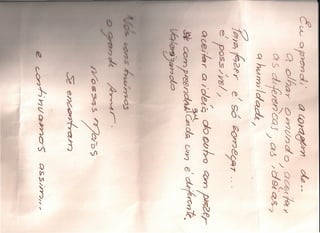 Eu aprendi a coragem de...
a olhar o mundo, aceitar
as diferenças, as ideias,
a humildade,
Para fazer é só começar...
é possivel!,
aceitar a ideia do outro com prazer
Se compreender Cada um é diferente.
Valorizando
Nós construimos
o grande Amor.
Nossas Mãos
Se encontram
e continuamos assim...